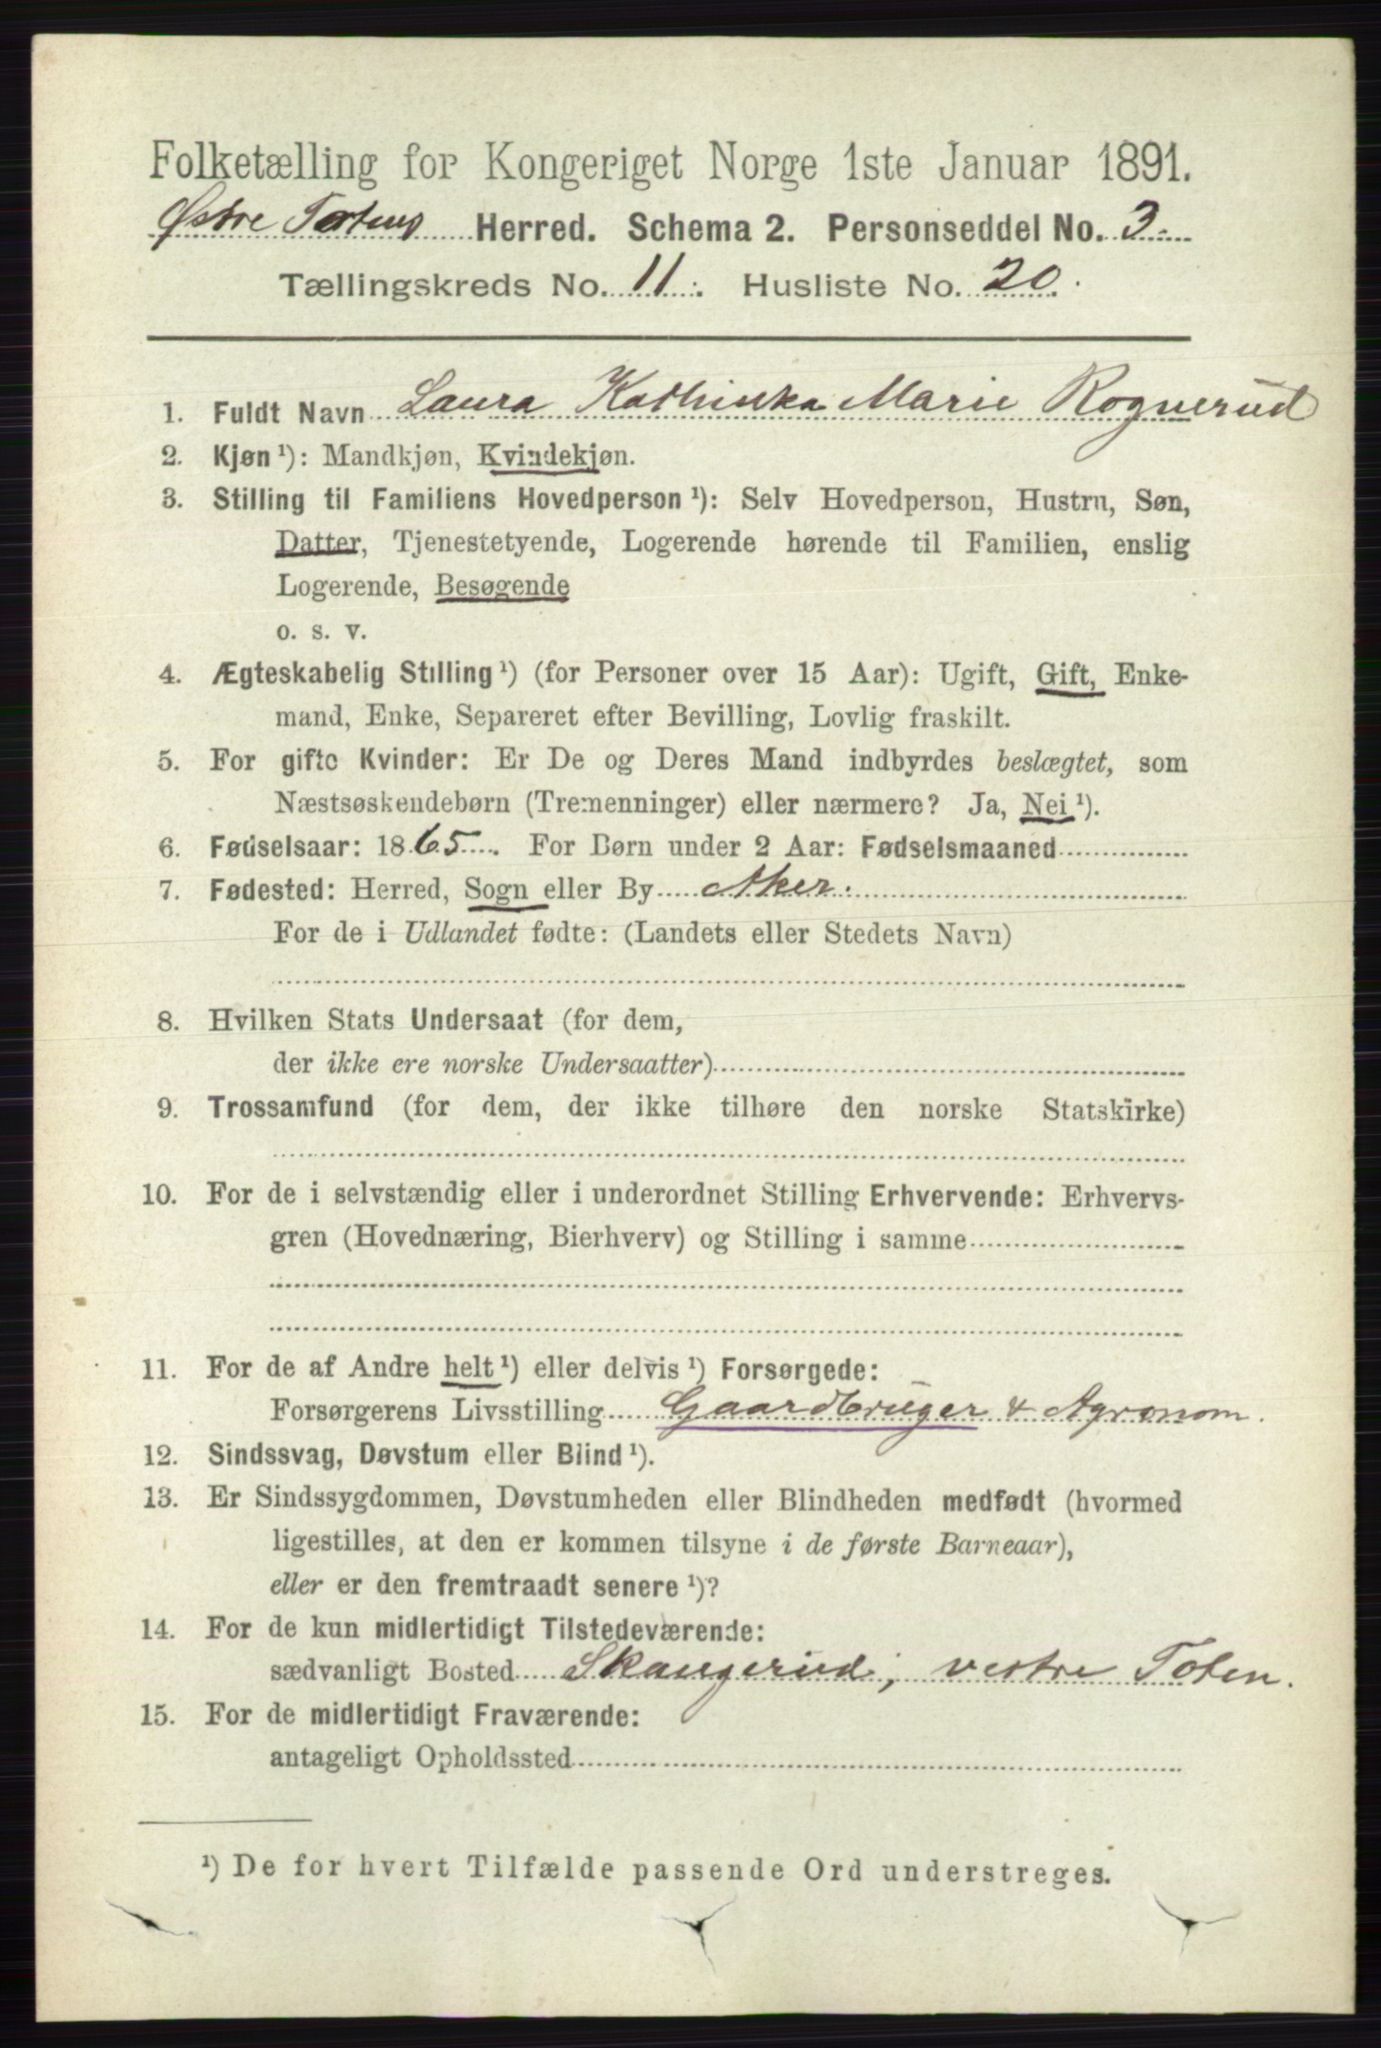 Folketælling for Kongeriget Norge 1ste Januar 1891.
Østre Totens Herred. Schema 2. Personseddel No. 3.
Tællingskreds No. 11. Husliste No. 20.
1. Fuldt Navn Laura Kathinka Marie Rognerud
2. Kjøn ¹): Mandkjøn, Kvindekjøn.
3. Stilling til Familiens Hovedperson ¹): Selv Hovedperson, Hustru, Søn,
Datter, Tjenestetyende, Logerende hørende til Familien, enslig
Logerende, Besøgende
o. s. v.
4. Ægteskabelig Stilling ¹) (for Personer over 15 Aar): Ugift, Gift, Enke-
mand, Enke, Separeret efter Bevilling, Lovlig fraskilt.
5. For gifte Kvinder: Er De og Deres Mand indbyrdes beslægtet, som
Næstsøskendebørn (Tremenninger) eller nærmere? Ja, Nei ¹).
6. Fødselsaar: 1865. For Børn under 2 Aar: Fødselsmaaned
7. Fødested: Herred, Sogn eller By Aker.
For de i Udlandet fødte: (Landets eller Stedets Navn)
8. Hvilken Stats Undersaat (for dem,
der ikke ere norske Undersaatter)
9. Trossamfund (for dem, der ikke tilhøre den norske Statskirke)
10. For de i selvstændig eller i underordnet Stilling Erhvervende: Erhvervs-
gren (Hovednæring, Bierhverv) og Stilling i samme
11. For de af Andre helt ¹) eller delvis ¹) Forsørgede:
Forsørgerens Livsstilling Gaardbruger & Agronom.
12. Sindssvag, Døvstum eller Blind ¹).
13. Er Sindssygdommen, Døvstumheden eller Blindheden medfødt (hvormed
ligestilles, at den er kommen tilsyne i de første Barneaar),
eller er den fremtraadt senere ¹)?
14. For de kun midlertidigt Tilstedeværende:
sædvanligt Bosted Skangerud, vestre Toten.
15. For de midlertidigt Fraværende:
antageligt Opholdssted
¹) De for hvert Tilfælde passende Ord understreges.